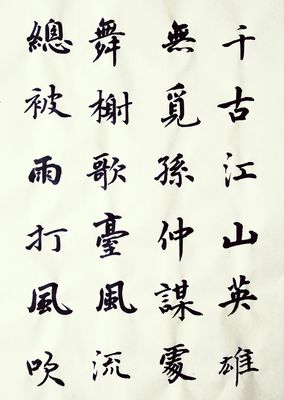 千古江山英雄
無覓孫仲謀處
舞榭歌臺風流
總被雨打風吹